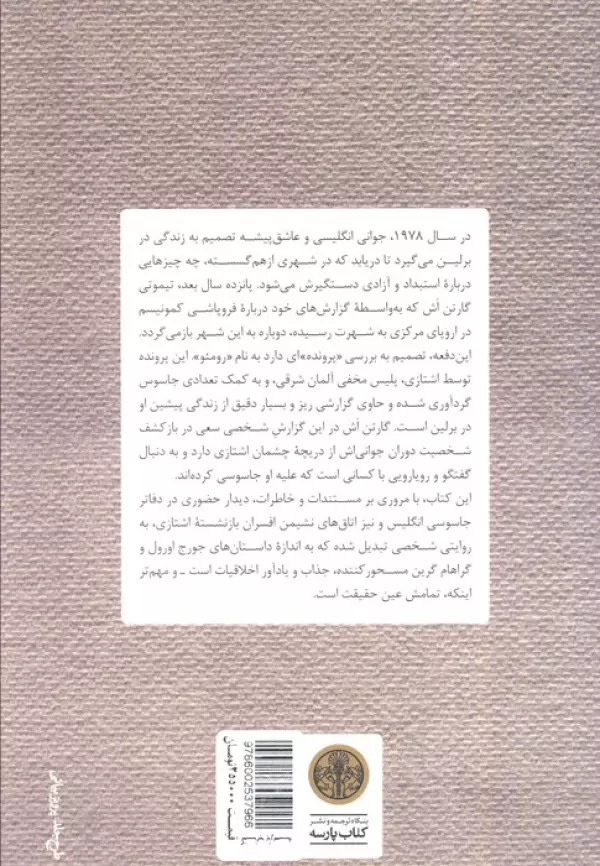 در سال ۱۹۷۸، جوانی انگلیسی و عاشق‌پیشه تصمیم به زندگی در
برلین می‌گیرد تا دریابد که در شهری ازهم‌گسسته، چه چیزهایی
دربارهٔ استبداد و آزادی دستگیرش می‌شود. پانزده سال بعد، تیموتی
گارتن اَش که به‌واسطهٔ گزارش‌های خود دربارهٔ فروپاشی کمونیسم
در اروپای مرکزی به شهرت رسیده، دوباره به این شهر بازمی‌گردد.
این‌دفعه، تصمیم به بررسی «پرونده»ای دارد به نام «رومئو». این پرونده
توسط اشتازی، پلیس مخفی آلمان شرقی، و به کمک تعدادی جاسوس
گردآوری شده و حاوی گزارشی ریز و بسیار دقیق از زندگی پیشین او
در برلین است. گارتن اَش در این گزارشِ شخصی سعی در بازکشف
شخصیت دوران جوانی‌اش از دریچهٔ چشمان اشتازی دارد و به دنبال
گفتگو و رویارویی با کسانی است که علیه او جاسوسی کرده‌اند.
این کتاب، با مروری بر مستندات و خاطرات، دیدار حضوری در دفاتر
جاسوسی انگلیس و نیز اتاق‌های نشیمن افسران بازنشستهٔ اشتازی، به
روایتی شخصی تبدیل شده که به اندازهٔ داستان‌های جورج اورول و
گراهام گرین مسحورکننده، جذاب و یادآور اخلاقیات است ـ و مهم‌تر
اینکه، تمامش عین حقیقت است.
9786002537966
قیمت ۳۵۵۰۰۰ تومان
بنگاه ترجمه و نشر
کتاب پارسه